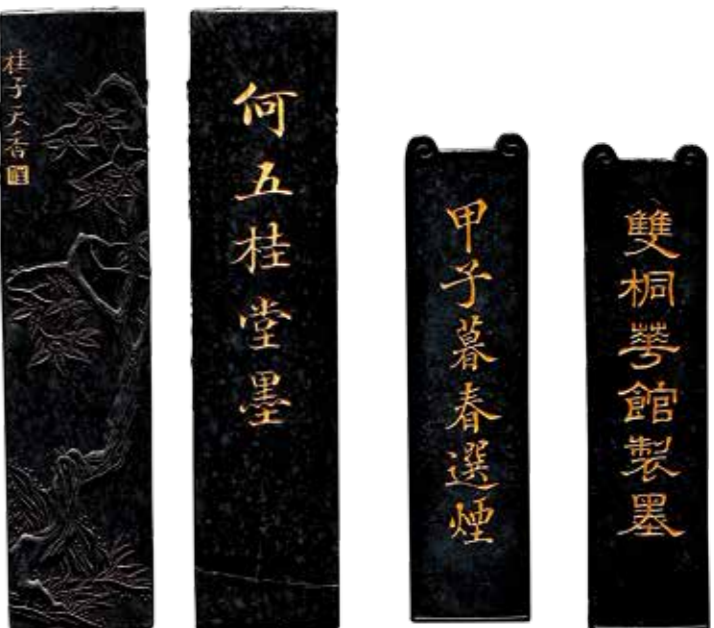 桂子天香
何五桂堂墨
甲子暮春選煙
雙桐華館製墨